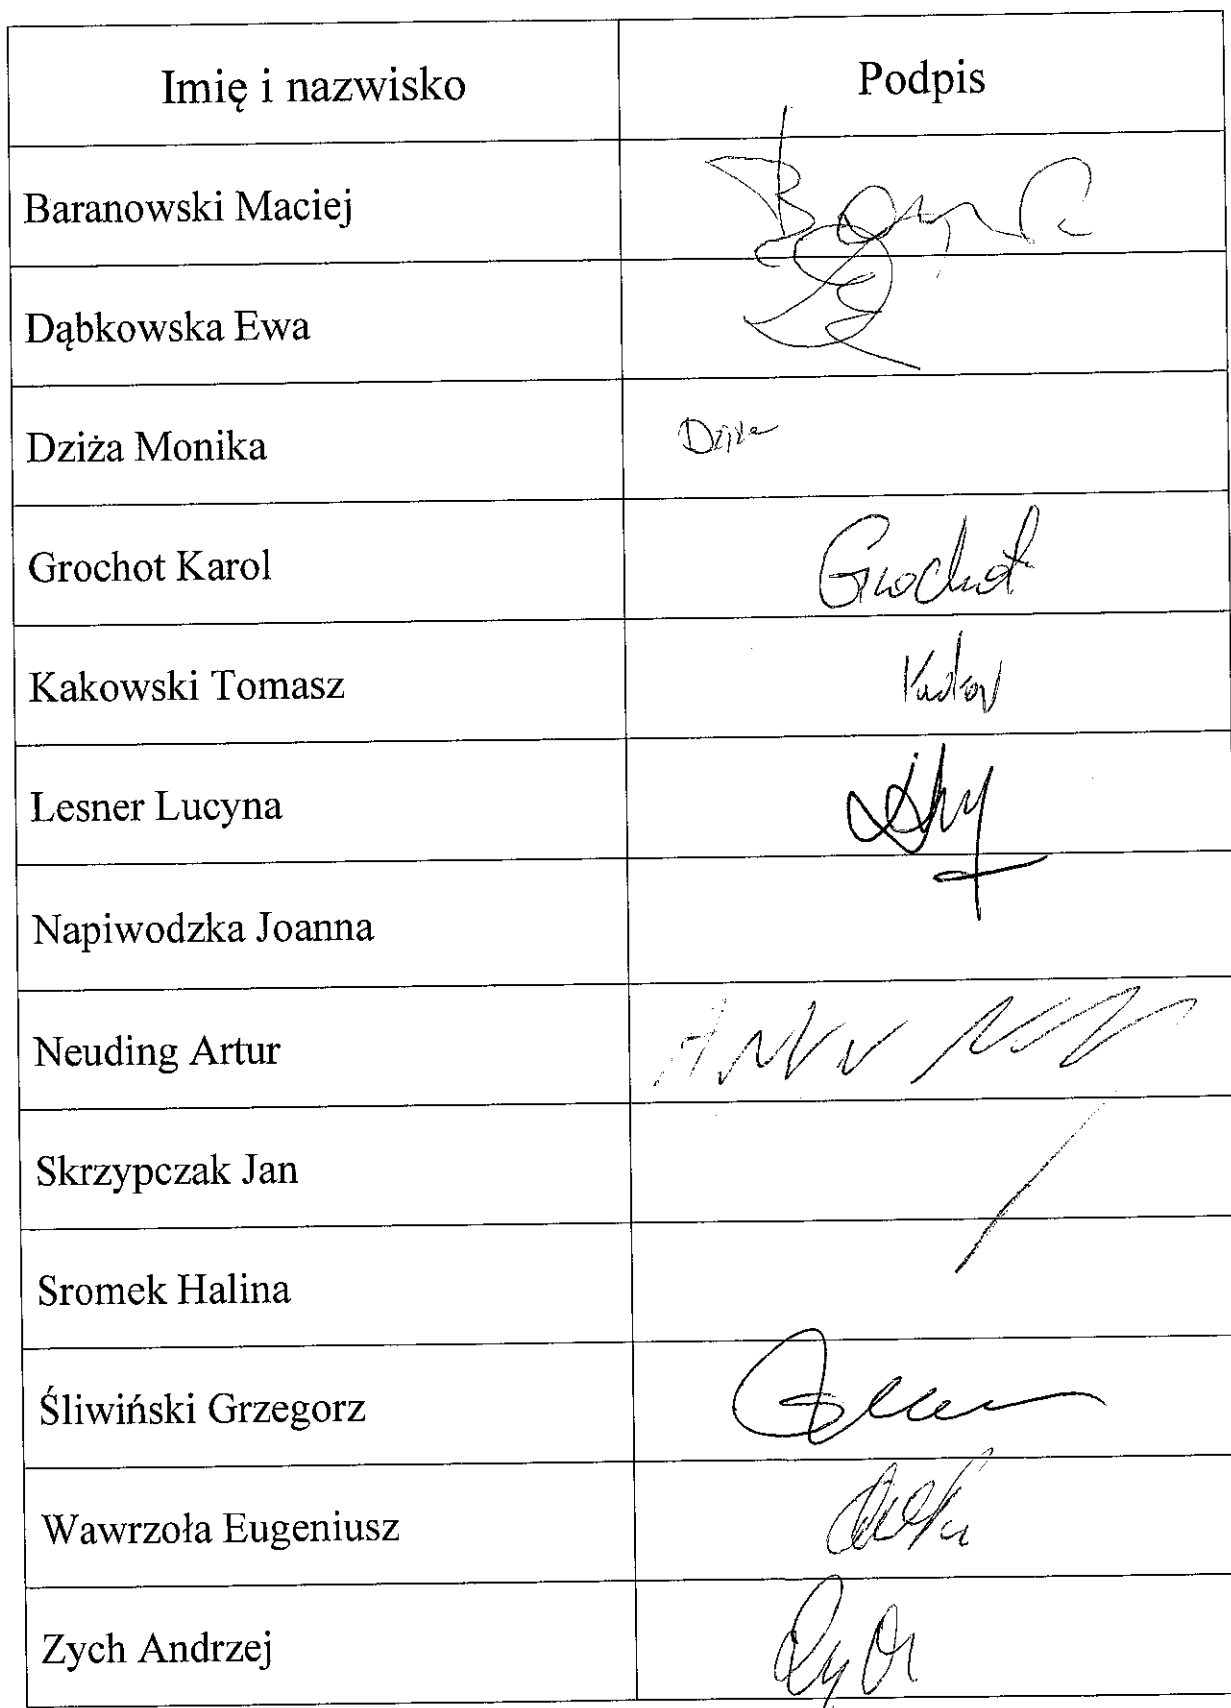 Imię i nazwisko Podpis
Baranowski Maciej
Dąbkowska Ewa
Dziża Monika
Grochot Karol Grochot
Kakowski Tomasz
Lesner Lucyna
Napiwodzka Joanna
Neuding Artur
Skrzypczak Jan
Sromek Halina
Śliwiński Grzegorz
Wawrzoła Eugeniusz
Zych Andrzej